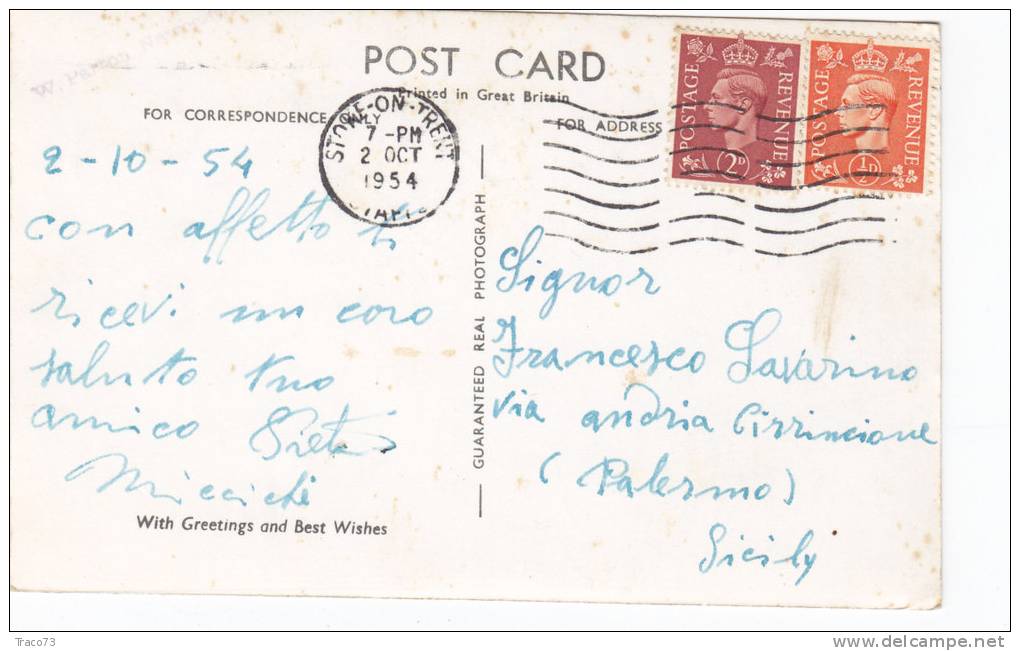 POST CARD
Printed in Great Britain
FOR CORRESPONDENCE ONLY
FOR ADDRESS
STOKE-ON-TRENT
7-PM
2 OCT
1954
STAFFS
POSTAGE REVENUE
2D
POSTAGE REVENUE
½D
2-10-54
con affetto ti
ricevi un coro
saluto tuo
amico
Miccichè
With Greetings and Best Wishes
GUARANTEED REAL PHOTOGRAPH
Signor
Francesco Savarino
via andria Cirrincione
(Palermo)
Sicily
Traco73
delcampe.net